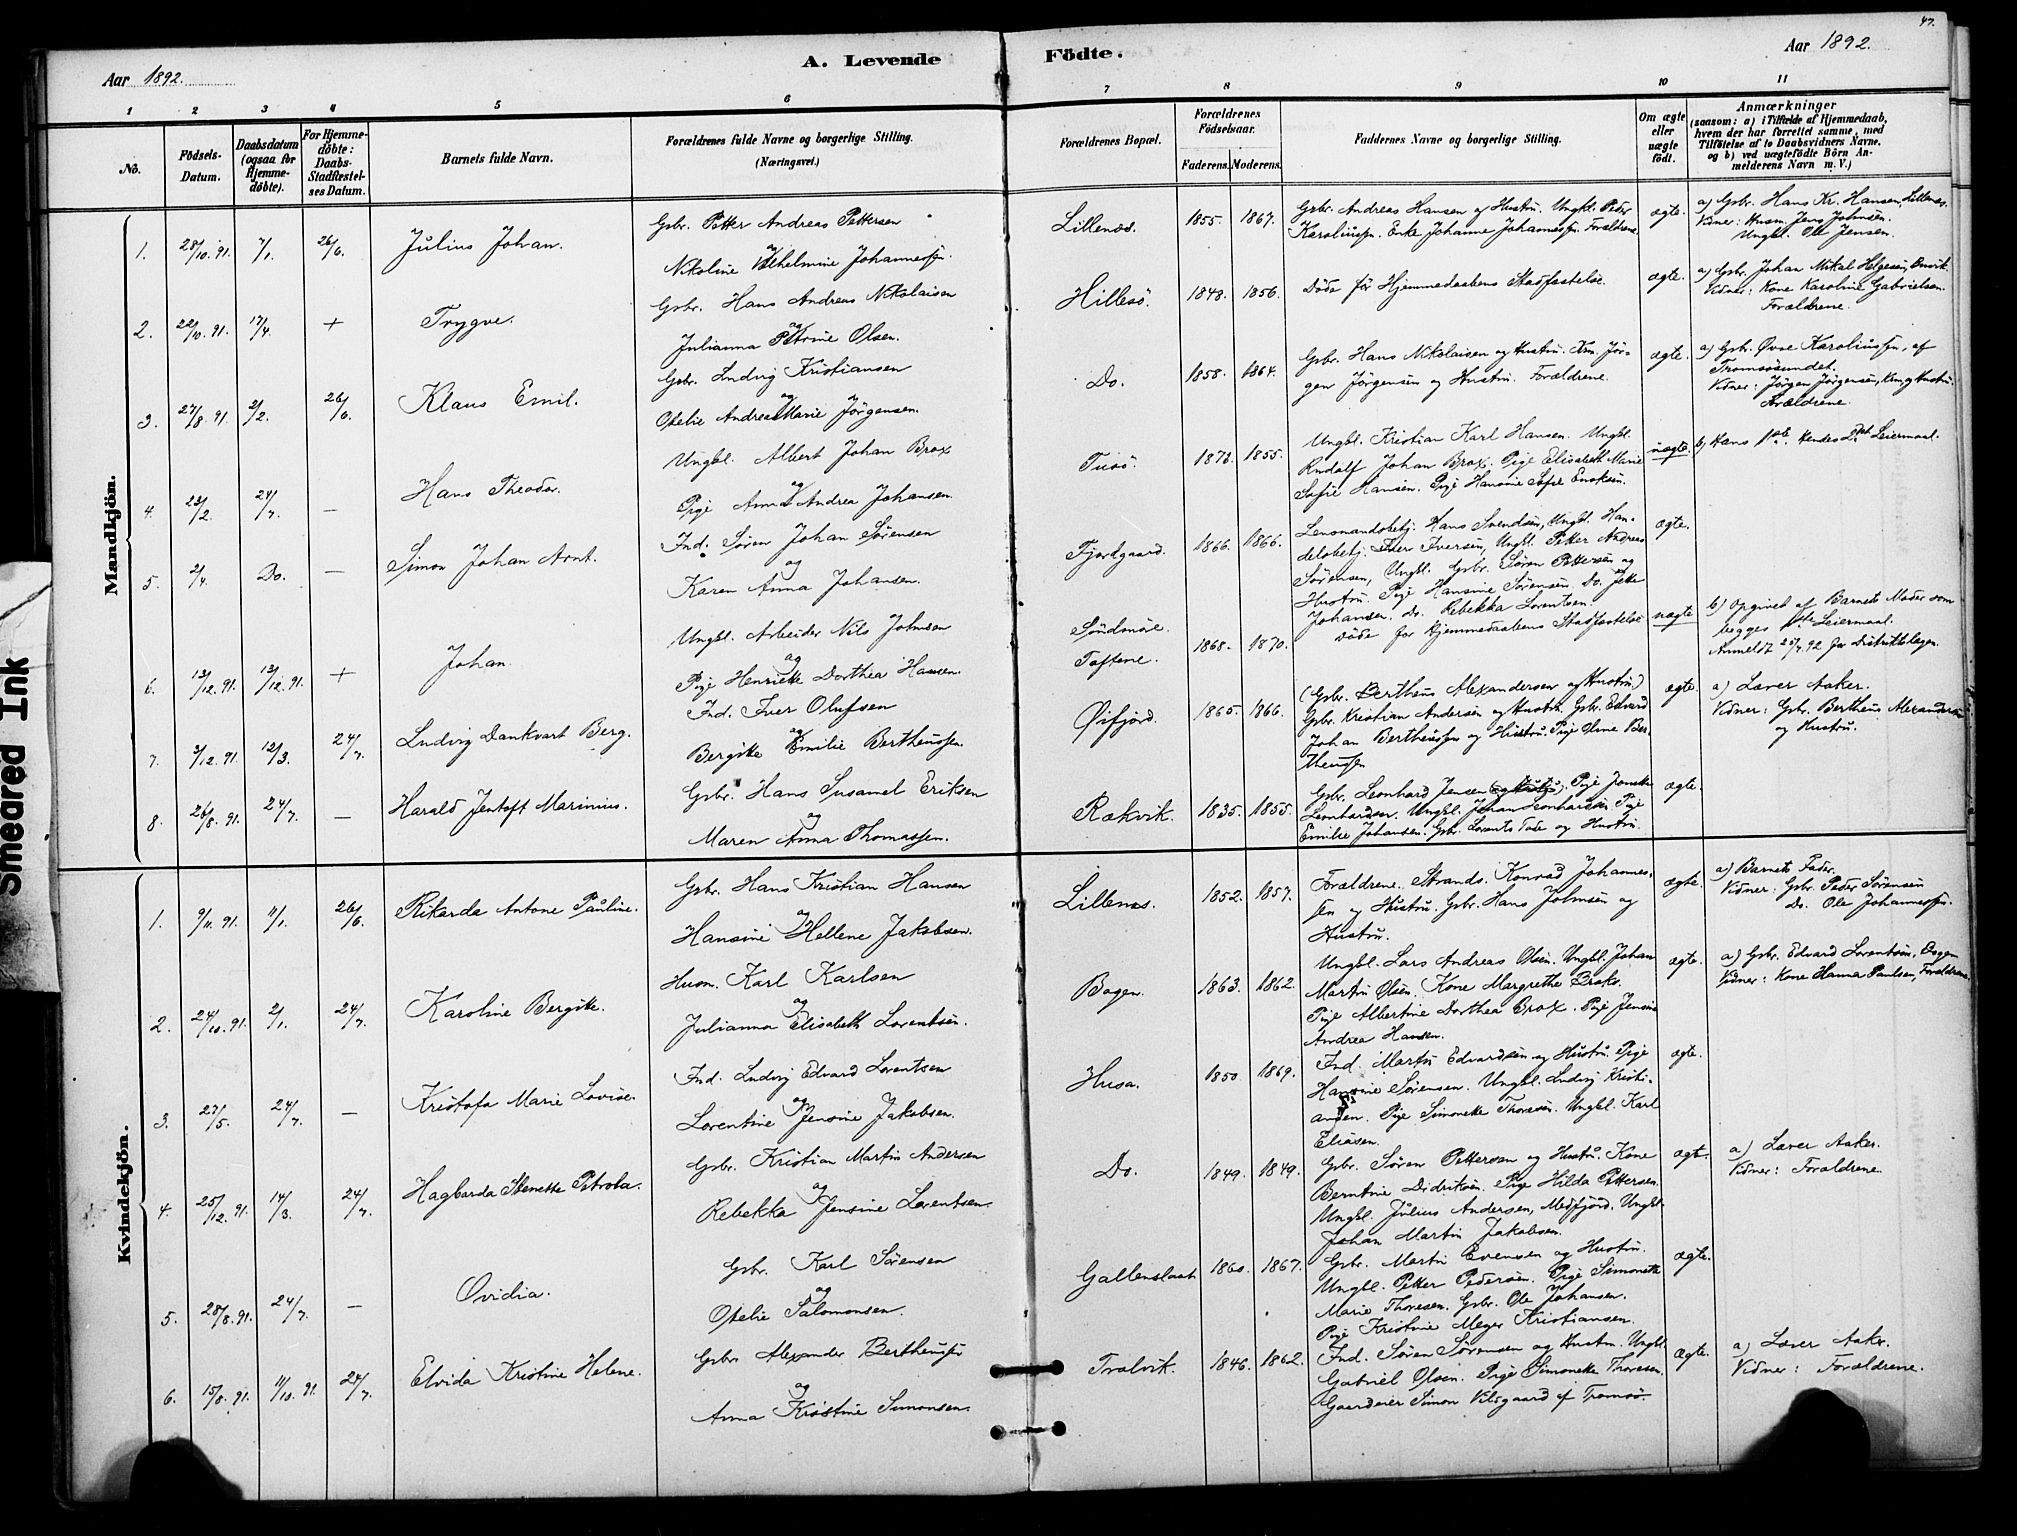 47.
Aar 1892.
A. Levende Födte.
Aar 1892.
1 2 3 4 5 6 7 8 9 10 11
No.
Födsels-
Datum.
Daabsdatum
(ogsaa for
Hjemme-
döbte).
For Hjemme-
döbte:
Daabs-
Stadfæstel-
ses Datum.
Barnets fulde Navn.
Forældrenes fulde Navne og borgerlige Stilling.
(Næringsvei.)
Forældrenes Bopæl.
Forældrenes
Födselsaar.
Faderens. Moderens.
Faddernes Navne og borgerlige Stilling.
Om ægte
eller
uægte
født.
Anmærkninger
(saasom: a) i Tilfælde af Hjemmedaab,
hvem der har forrettet samme, med
Tilföielse af to Daabsvidners Navne,
og b) ved uægtefödte Börn An-
melderens Navn m. V.)
Mandkjön.
1. 28/10. 91. 7/1. 26/6. Julius Johan.
Gbr. Petter Andreas Pettersen
og
Nikoline Vilhelmine Johannessen.
Lillenes. 1855. 1867.
Gbr. Andreas Hansen og Hustru. Ungkl. Peder
Karoliussen. Enke Johanne Johannessen. Forældrene.
ægte.
a) Gbr. Hans Kr. Hansen, Lillenes.
Vidner: Husm. Jens Johnsen.
Ungkl. Ole Jensen.
2. 22/10. 91. 17/4. + Trygve.
Gbr. Hans Andreas Nikolaisen
og
Julianna Petrine Olsen.
Hillesö. 1848. 1856.
Döde før Hjemmedaabens Stadfæstelse.
ægte.
a) Gbr. Johan Mikal Helgesen,
Vidner: Kone Karoline Gabrielsen.
Forældrene.
3. 27/8. 91. 2/2. 26/6. Klaus Emil.
Gbr. Ludvig Kristiansen
og
Otelie Andrea Marie Jørgensen.
Do. 1858. 1864.
Gbr. Hans Nikolaisen og Hustru. Krm. Jør-
gen Jørgensen og Hustru. Forældrene.
ægte.
a) Gbr. Øvre Karoliussen, af
Tromsösundet.
Vidner: Jørgen Jørgensen, Krm. og Hustru.
Forældrene.
4. 23/2. 24/7. — Hans Theodor.
Ungkl. Albert Johan Brox
og
Pige Anna Andrea Johansen.
Tusö. 1872. 1855.
Ungkl. Kristian Karl Hansen. Ungkl.
Rudolf Johan Brox. Pige Elisabeth Marie
Sofie Hansen. Pige Hansine Sofie Enoksen.
uægte.
b) Hans 1ste. Hendes 2det Leiermaal.
5. 2/4. Do. — Simon Johan Arnt.
Ind. Søren Johan Sørensen
og
Karen Anna Johansen.
Fjordgaard. 1866. 1866.
Lensmandsbetj. Hans Svendsen, Ungkl. Han-
delsbetj. Iver Iversen, Ungkl. Petter Andreas
Sørensen, Ungkl. Gbr. Søren Pettersen og
Hustru. Pige Hansine Sørensen. Do. Jette
Johansen. Do. Rebekka Lorentsen.
ægte.
6. 13/12. 91. 13/12. 91. + Johan.
Ungkl. Arbeider Nils Johnsen
og
Pige Henriette Dorthea Hansen.
Söndmöe.
Toftene. 1868. 1870.
Döde før Hjemmedaabens Stadfæstelse
uægte
b) Opgivet af Barnets Moder som
begges 1ste Leiermaal.
Anmeldt 25/7. 92 for Distriktslægen.
7. 3/12. 91. 12/3. 24/7. Ludvig Dankvart Berg.
Ind. Iver Olufsen
og
Bergitte Emilie Bertheussen.
Øifjord. 1865. 1866.
(Gbr. Bertheus Alexandersen og Hustru.)
Gbr. Kristian Andersen og Hustru. Gbr. Edvard
Johan Bertheussen og Hustru. Pige Oline Ber-
theussen
ægte.
a) Lærer Aaker.
Vidner: Gbr. Bertheus Alexandersen
og Hustru.
8. 26/8. 91. 24/7. — Harald Jentoft Marinius.
Gbr. Hans Susamel Eriksen
og
Maren Anna Thomassen.
Rækvik. 1835. 1855.
Gbr. Leonhard Jensen (og Hustru). Pige Jonette
Leonhardsen. Ungkl. Johan Leonhardsen. Pige
Emilie Johansen. Gbr. Lorents Tode og Hustru.
ægte.
Kvindekjön.
1. 9/11. 91. 11/1. 26/6. Rikarda Antone Pauline.
Gbr. Hans Kristian Hansen
og
Hansine Hellene Jakobsen.
Lillenes. 1852. 1857.
Forældrene. Strands. Konrad Johannes-
sen og Hustru. Gbr. Hans Johnsen og
Hustru.
ægte.
a) Barnets Fader.
Vidner: Gbr. Peder Sørensen
Do. Ole Johannessen.
2. 24/10. 91. 2/1. 24/7. Karoline Bergitte.
Husm. Karl Karlsen
og
Julianna Elisabeth Lorentsen.
Bogen. 1863. 1862.
Ungkl. Lars Andreas Olsen. Ungkl. Johan
Martin Olsen. Kone Margrethe Broks.
Pige Albertine Dorthea Brox. Pige Jensine
Andrea Hansen.
ægte.
a) Gbr. Edvard Lorentsen, Bogen
Vidner: Kone Hanna Paulsen, Forældrene.
3. 27/5. 24/7. — Kristofa Marie Lovise.
Ind. Ludvig Edvard Lorentsen
og
Lorentine Jensine Jakobsen.
Husa. 1850 1869.
Ind. Martin Edvardsen og Hustru. Pige
Hansine Sørensen. Ungkl. Ludvig Kristi-
ansen. Pige Simonette Thoresen. Ungkl. Karl
Eliasen.
ægte.
4. 25/12. 91. 14/3. 24/7. Hagbarda Stenette Petrola.
Gbr. Kristian Martin Andersen
og
Rebekka Jensine Lorentsen.
Do. 1849. 1849.
Gbr. Søren Pettersen og Hustru. Kone
Berntine Didriksen. Pige Hilda Pettersen.
Ungkl. Julius Andersen, Medfjord. Ungkl.
Johan Martin Jakobsen.
ægte.
a) Lærer Aaker.
Vidner: Forældrene.
5. 28/8. 91. 24/7. — Ovidia.
Gbr. Karl Sørensen
og
Otelie Salomonsen.
Gallenslaat 1860. 1867.
Gbr. Martin Evensen og Hustru.
Ungkl. Petter Pedersen. Pige Simonette
Marie Thoresen. Gbr. Ole Johansen.
Pige Kristine Meyer Kristiansen.
ægte.
6. 15/8. 91. 11/10. 91. 24/7. Elvida Kristine Helene.
Gbr. Alexander Bertheussen
og
Anna Kristine Simonsen.
Trælvik. 1846. 1862.
Ind. Søren Sørensen og Hustru. Ungkl.
Gabriel Olsen. Pige Simonette Thoresen.
Gaardeier Simon Vilsgaard af Tromsö.
ægte.
a) Lærer Aaker.
Vidner: Forældrene.
Smeared Ink